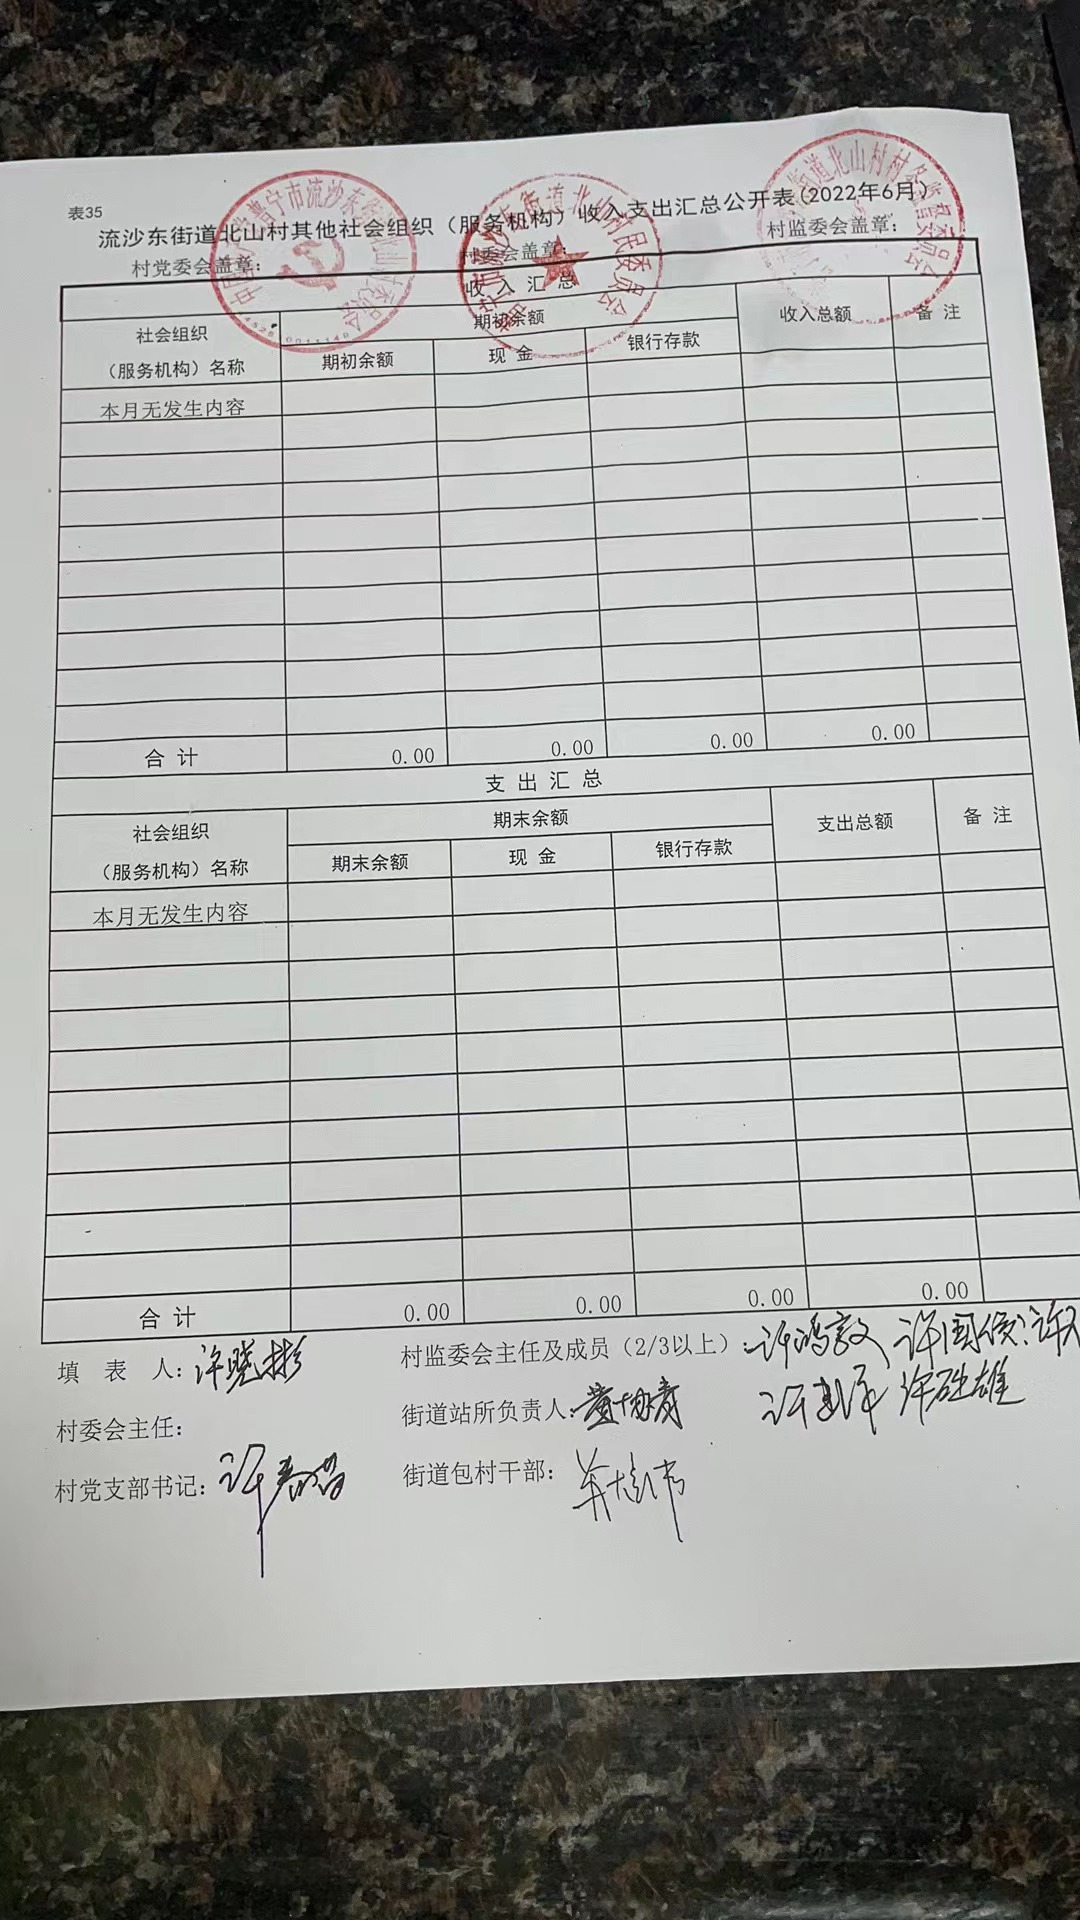 表35
流沙东街道北山村其他社会组织（服务机构）收入支出汇总公开表（2022年6月）
村党委会盖章： 村委会盖章： 村监委会盖章：
收 入 汇 总
社会组织（服务机构）名称 期初余额 收入总额 备 注
期初余额 现 金 银行存款
本月无发生内容
合 计 0.00 0.00 0.00 0.00
支 出 汇 总
社会组织（服务机构）名称 期末余额 支出总额 备 注
期末余额 现 金 银行存款
本月无发生内容
合 计 0.00 0.00 0.00 0.00
填 表 人：许晓彬 村监委会主任及成员（2/3以上）
村委会主任： 街道站所负责人：
村党支部书记： 街道包村干部：